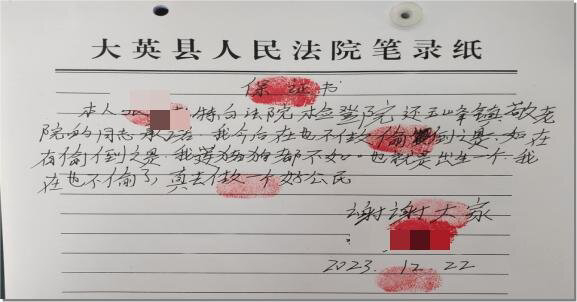 大英县人民法院笔录纸
保证书
本人 特向法院 检 院 还玉峰镇敬老
院的同志 我今后在也不做偷 倒 如在
有偷 倒 我连猪狗都不如 也 出生一个 我
在也不偷了 真去做一个好公民
谢谢大家
2023. 12. 22